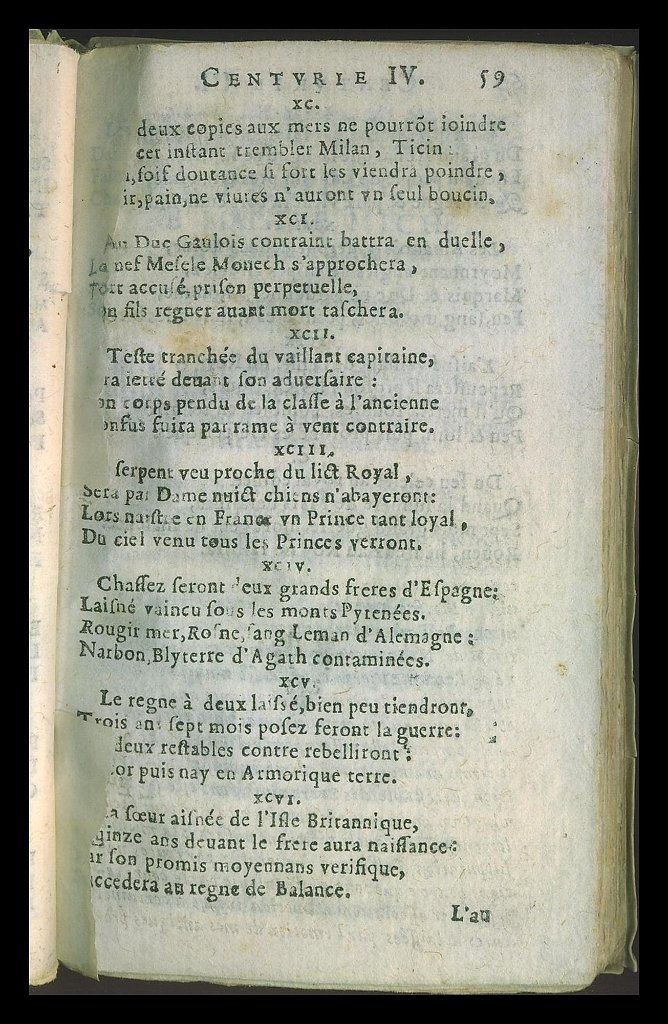 CENTVRIE IV. 59
XC.
deux copies aux mers ne pourrõt ioindre
cet inſtant trembler Milan, Ticin:
,ſoif doutance ſi fort les viendra poindre,
ir,pain,ne viures n'auront vn ſeul boucin.
XCI.
Au Duc Gaulois contraint battra en duelle,
La nef Meſele Monech s'approchera,
Tort accuſé,priſon perpetuelle,
on fils regner auant mort taſchera.
XCII.
Teſte tranchée du vaillant capitaine,
ra ietté deuant ſon aduerſaire:
on corps pendu de la claſſe à l'ancienne
onfus fuira par rame à vent contraire.
XCIII.
ſerpent veu proche du lict Royal,
Sera par Dame nuict chiens n'abayeront:
Lors naiſtre en France vn Prince tant loyal,
Du ciel venu tous les Princes verront.
XCIV.
Chaſſez ſeront deux grands freres d'Eſpagne:
Laiſné vaincu ſous les monts Pyrenées.
Rougir mer,Roſne,ſang Leman d'Alemagne:
Narbon,Blyterre d'Agath contaminées.
XCV.
Le regne à deux laiſſé,bien peu tiendront,
Trois ans ſept mois poſez feront la guerre:
deux reſtables contre rebelliront:
tor puis nay en Armorique terre.
XCVI.
La ſœur aiſnée de l'Iſle Britannique,
Quinze ans deuant le frere aura naiſſance:
ar ſon promis moyennans verifique,
uccedera au regne de Balance.
L'au